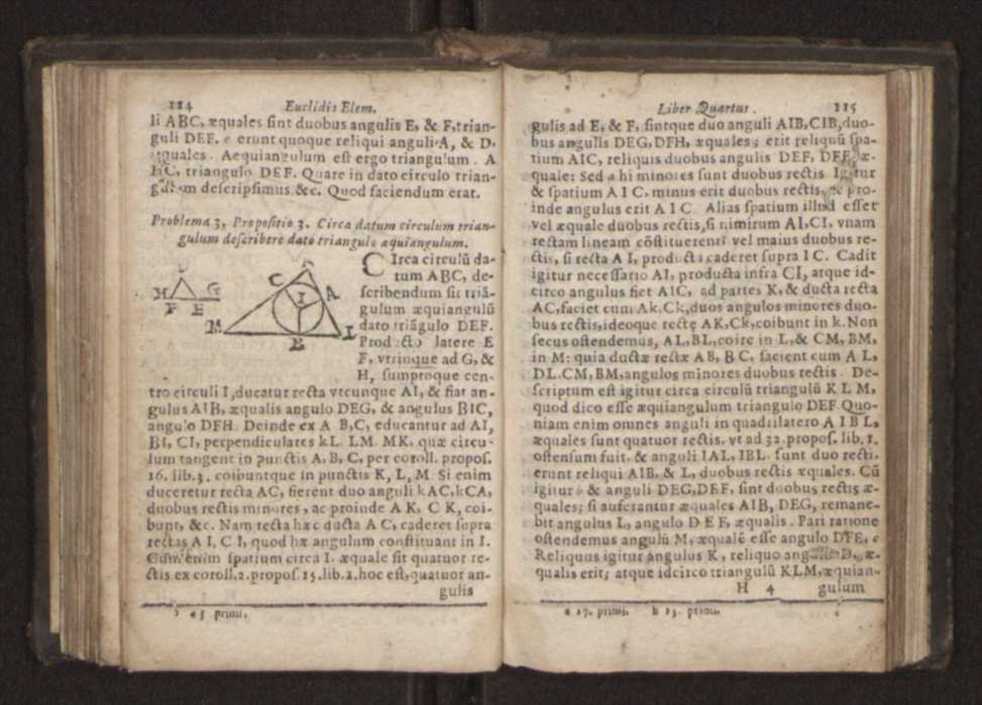 114 Euclidis Elem.
li ABC, æquales sint duobus angulis E, & F, trian-
guli DEF, erunt quoque reliqui anguli A, & D,
æquales. Aequiangulum est ergo triangulum. A
BC, triangulo DEF. Quare in dato circulo trian-
descripsimus &c. Quod faciendum erat.
Problema 3, Propositio 3. Circa datum circulum trian-
gulum describere dato triangulo æquiangulum.
CIrca circulū da-
tum ABC, de-
scribendum sit triā-
gulum æquiangulū
dato triāgulo DEF.
Producto latere E
F, vtrinque ad G, &
H, sumptoque cen-
D
H G
F E
K
C A
I
M L
B
tro circuli I, ducatur recta vtcunque AI, & fiat an-
gulus AIB, æqualis angulo DEG, & angulus BIC,
angulo DFH. Deinde ex A B, C, educantur ad AI,
BI, CI, perpendiculares kL. LM. MK, quæ circu-
lum tangent in punctis A, B, C, per coroll. propos.
16. lib. 3. coibuntque in punctis K, L, M. Si enim
duceretur recta AC, fierent duo anguli kAC, kCA,
duobus rectis minores, ac proinde A K, C K, coi-
bunt, &c. Nam recta hæc ducta A C, caderet supra
rectas A I, C I, quod hæ angulum constituant in I.
Cùm enim spatium circa I. æquale sit quatuor re-
ctis ex coroll. 2. propos. 15. lib. 1. hoc est, quatuor an-
gulis
a 5 primi.
Liber Quartus. 115
gulis ad E, & F, sintque duo anguli AIB, CIB, duo-
bus angulis DEG, DFH, æquales; erit reliquū spa-
tium AIC, reliquis duobus angulis DEF, DFE, æ-
quale: Sed a hi minores sunt duobus rectis. Igitur
& spatium A I C. minus erit duobus rectis, pro-
inde angulus erit A I C. Alias spatium illud esset
vel æquale duobus rectis, si nimirum AI, CI, vnam
rectam lineam cōstituerent vel maius duobus re-
ctis, si recta A I, producta caderet supra I C. Cadit
igitur necessario AI, producta infra CI, atque id-
circo angulus fiet AIC, ad partes K, & ducta recta
AC, faciet cum Ak, Ck, duos angulos minores duo-
bus rectis, ideoque rectę AK, Ck, coibunt in k. Non
secus ostendemus, AL, BL, coire in L, & CM, BM,
in M: quia ductæ rectæ AB, B C, facient cum A L,
DL. CM, BM, angulos minores duobus rectis. De-
scriptum est igitur circa circulū triangulū K L M,
quod dico esse æquiangulum triangulo DEF. Quo-
niam enim omnes anguli in quadrilatero A I B L,
æquales sunt quatuor rectis, vt ad 32. propos. lib. 1.
ostensum fuit, & anguli IAL, IBL, sunt duo recti,
erunt reliqui AIB, & L, duobus rectis æquales. Cū
igitur b & anguli DEG, DEF, sint duobus rectis æ-
quales; si auferantur æquales AIB, DEG, remane-
bit angulus L, angulo D E F, æqualis. Pari ratione
ostendemus angulū M, æqualē esse angulo DFE,
Reliquus igitur angulus K, reliquo D, æ-
qualis erit; atque idcirco triangulū KLM, æquian-
H 4 gulum
a 17. primi. b 13. primi.